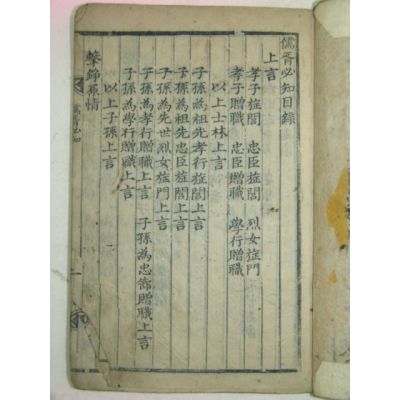 儒胥必知目錄
上言
孝子旌閭 忠臣旌閭 烈女旌門
孝子贈職 忠臣贈職 學行贈職
以上士林上言
子孫爲祖先孝行旌閭上言
子孫爲祖先忠臣旌閭上言
子孫爲先世烈女旌門上言
子孫爲孝行贈職上言 子孫爲忠節贈職上言
子孫爲學行贈職上言
以上子孫上言
擊錚原情
儒胥必知
一